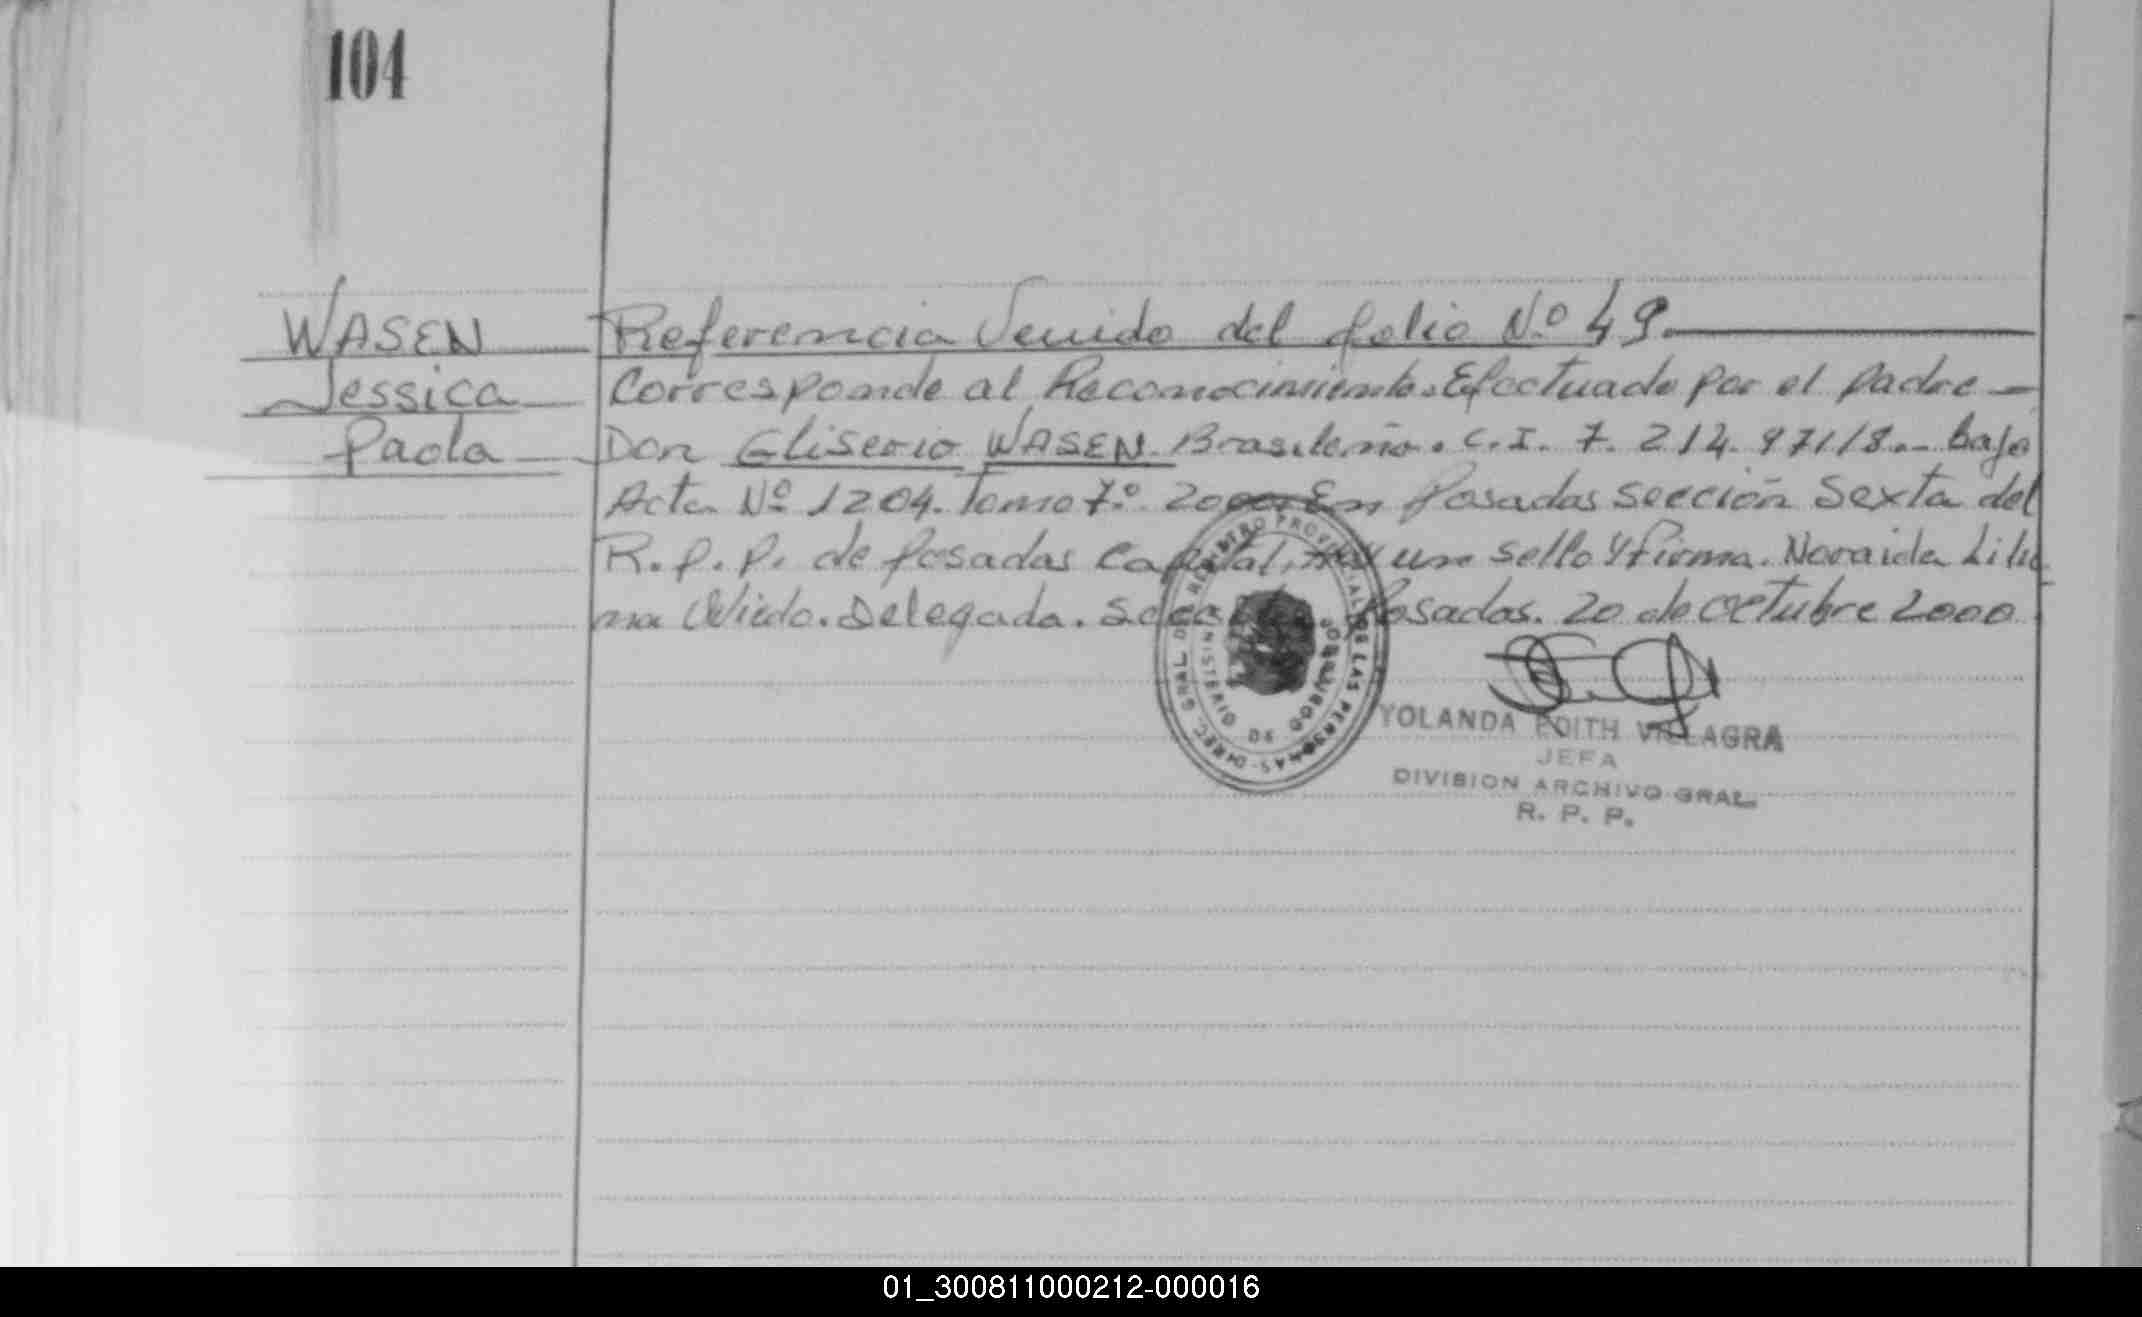 104
WASEN
Jessica
Paola
Referencia Venido del folio Nº 49.
Corresponde al Reconocimiento. Efectuado por el padre
Don Eliserio WASEN. Brasileño. C.I. 7. 214. 971/8. bajo
Acta Nº 1204. Tomo 7º. 2000. En Posadas Sección Sexta del
R.P.P. de Posadas Capital, Hay un sello y firma. Noraida Lilia
na Oviedo. Delegada. Posadas. 20 de octubre 2000
DIREC. GRAL. DE REGISTRO PROVINCIAL DE LAS PERSONAS
MINISTERIO DE GOBIERNO
YOLANDA EDITH VILLAGRA
JEFA
DIVISION ARCHIVO GRAL.
R. P. P.
01_300811000212-000016